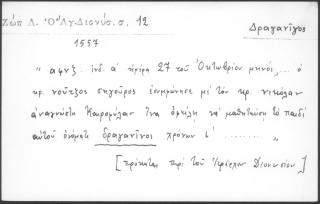 Ζώη Λ. Ὁ Ἅγ. Διονύσ. σ. 12
Δραγανῖγος
1557
"αφνζ. ἰνδ. α´ ἡμέρᾳ 27 τοῦ Ὀκτωβρίου μηνός, ... ὁ
κρ. νούτζος σιγοῦρος ἐσυμφώνησε μὲ τὸν κρ. νικόλαν
ἀναγνώστη Καιρομύλαν ἵνα ὀφείλῃ νὰ μαθητεύσῃ τὸ παιδί
αὐτοῦ ὀνόματι δραγανῖνος χρόνων ι´ ........ "
[πρόκειται περὶ τοῦ Ἁγίου Διονυσίου]